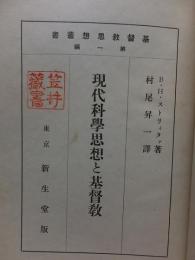 基督教思想叢書
第一編
B・H・ストリーター著
村尾昇一譯
現代科學思想と基督教
東京 新生堂版
笠井藏書